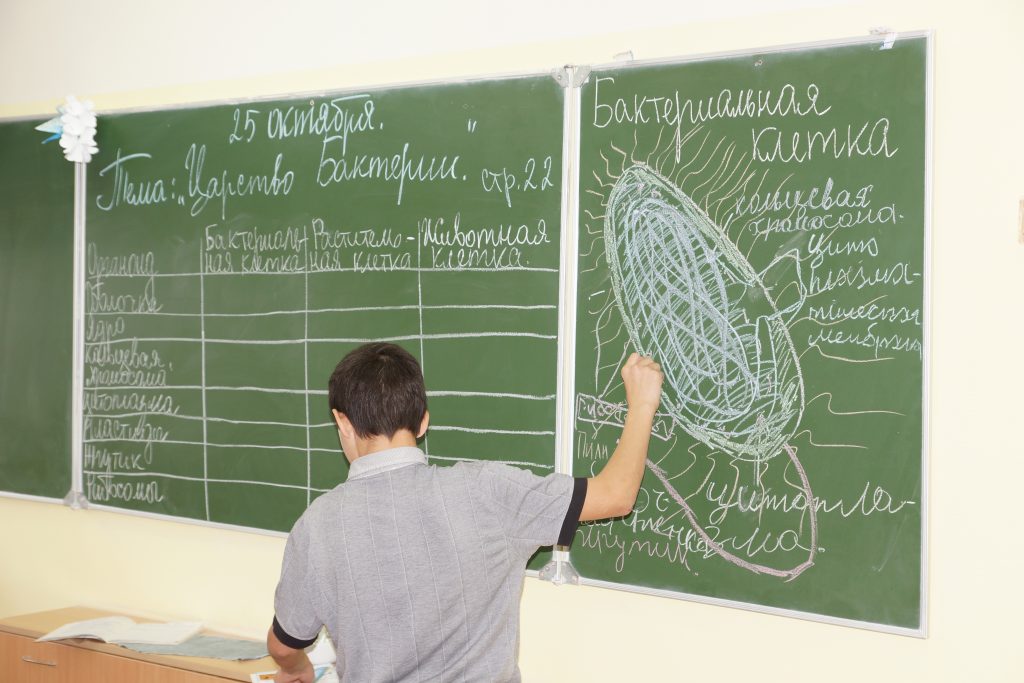 25 октября.
Тема: „Царство Бактерии." стр. 22
Бактериаль- Раститель- Животная
ная клетка ная клетка клетка.
Органоид
Оболочка
Ядро
Кольцевая
хромосома
Цитоплазма
Пластиды
Жгутик
Рибосомы
Бактериальная
клетка
кольцевая
хромосома.
цито
плазма-
тическая
мембрана
Пили
цитопла-
зма.
жгутик